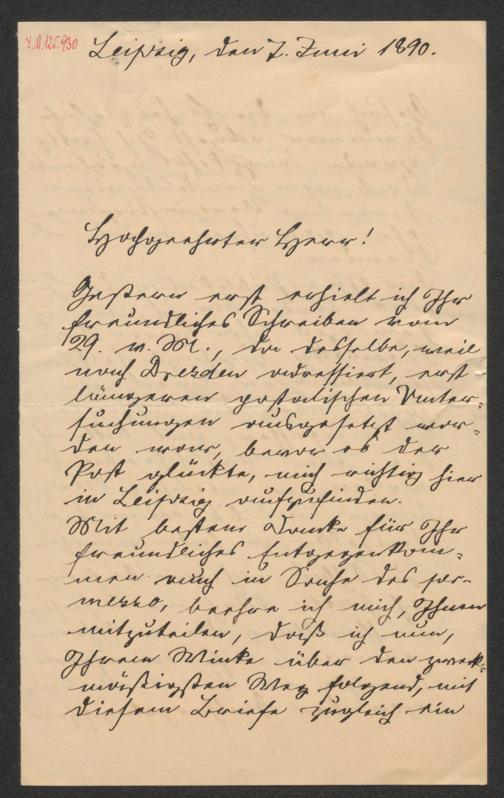 I.N.125.930
Leipzig, den 7. Juni 1890.
Hochgeehrter Herr!
Gestern erst erhielt ich Ihr
freundliches Schreiben vom
29. v. M., da dasselbe, weil
nach Dresden adressiert, erst
längeren postalischen Unter-
suchungen ausgesetzt wor-
den war, bevor es der
Post glückte, mich richtig hier
in Leipzig aufzufinden.
Mit bestem Danke für Ihr
freundliches Entgegenkom-
men auch in Sache des
beehre ich mich, Ihnen
mitzuteilen, daß ich nun,
Ihrem Winke über den zweck-
mäßigsten Weg folgend, mit
diesem Briefe zugleich ein